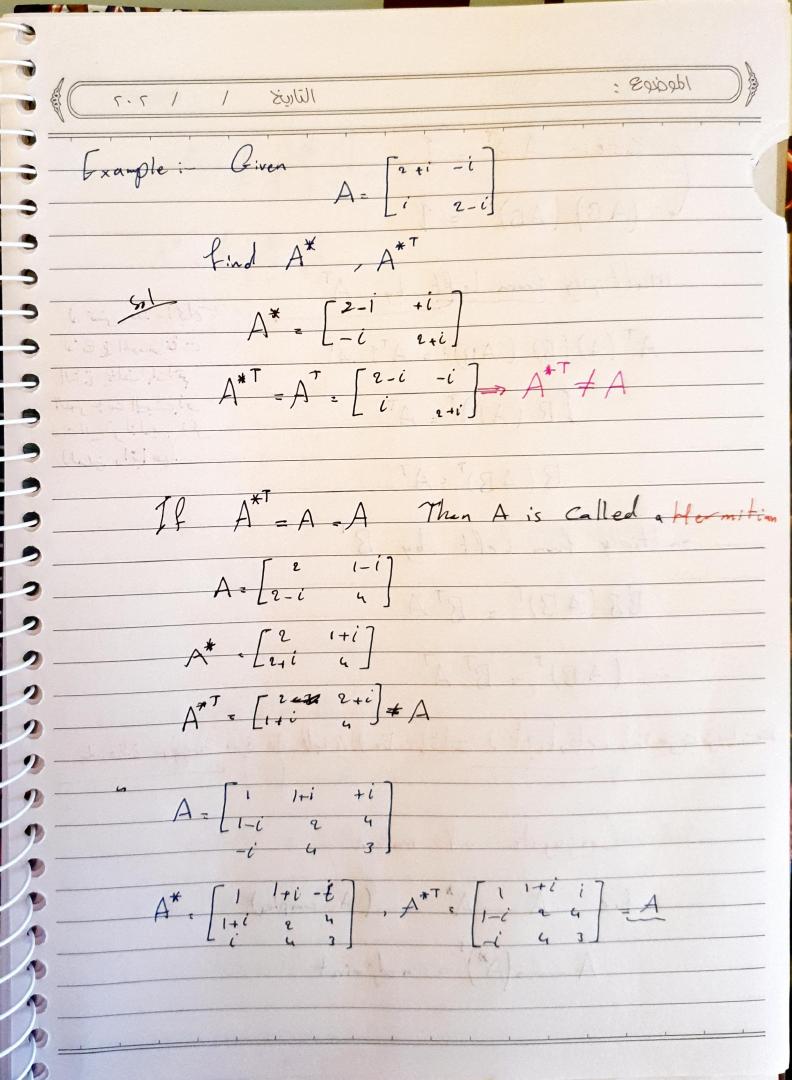 الموضوع :
التاريخ / / ٢٠٢
Example :- Given
A = [2+i -i
i 2-i]
find A* , A*T
Sol
A* = [2-i +i
-i 2+i]
A*T = AT = [2-i -i
i 2+i] ⇒ A*T ≠ A
If A*T = A = A Then A is called a Hermitian
A = [2 1-i
2-i 4]
A* = [2 1+i
2+i 4]
A*T = [2 2+i
1+i 4] ≠ A
A = [1 1+i +i
1-i 2 4
-i 4 3]
A* = [1 1+i -i
1+i 2 4
i 4 3] , A*T = [1 1+i i
1-i 2 4
-i 4 3] = A